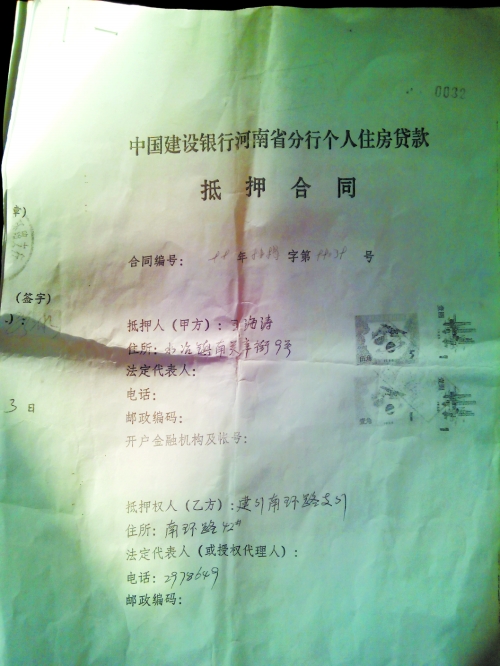 0032
中国建设银行河南省分行个人住房贷款
抵押合同
章)
合同编号: 年 字第 号
(签字)
抵押人(甲方): 海涛
住所: 水冶镇 街9号
法定代表人:
电话:
3日
邮政编码:
开户金融机构及帐号:
抵押权人(乙方): 建行南环路支行
住所: 南环路42#
法定代表人(或授权代理人):
电话: 2978649
邮政编码: